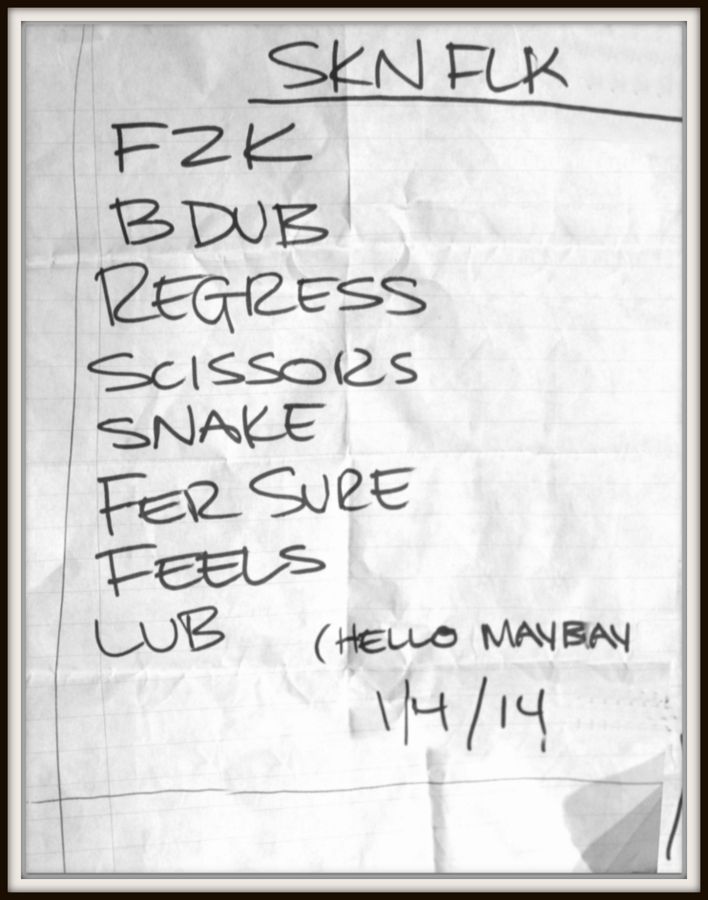 SKN FLK
FZK
B DUB
REGRESS
SCISSORS
SNAKE
FER SURE
FEELS
LUB (HELLO MAYBAY
1/4/14